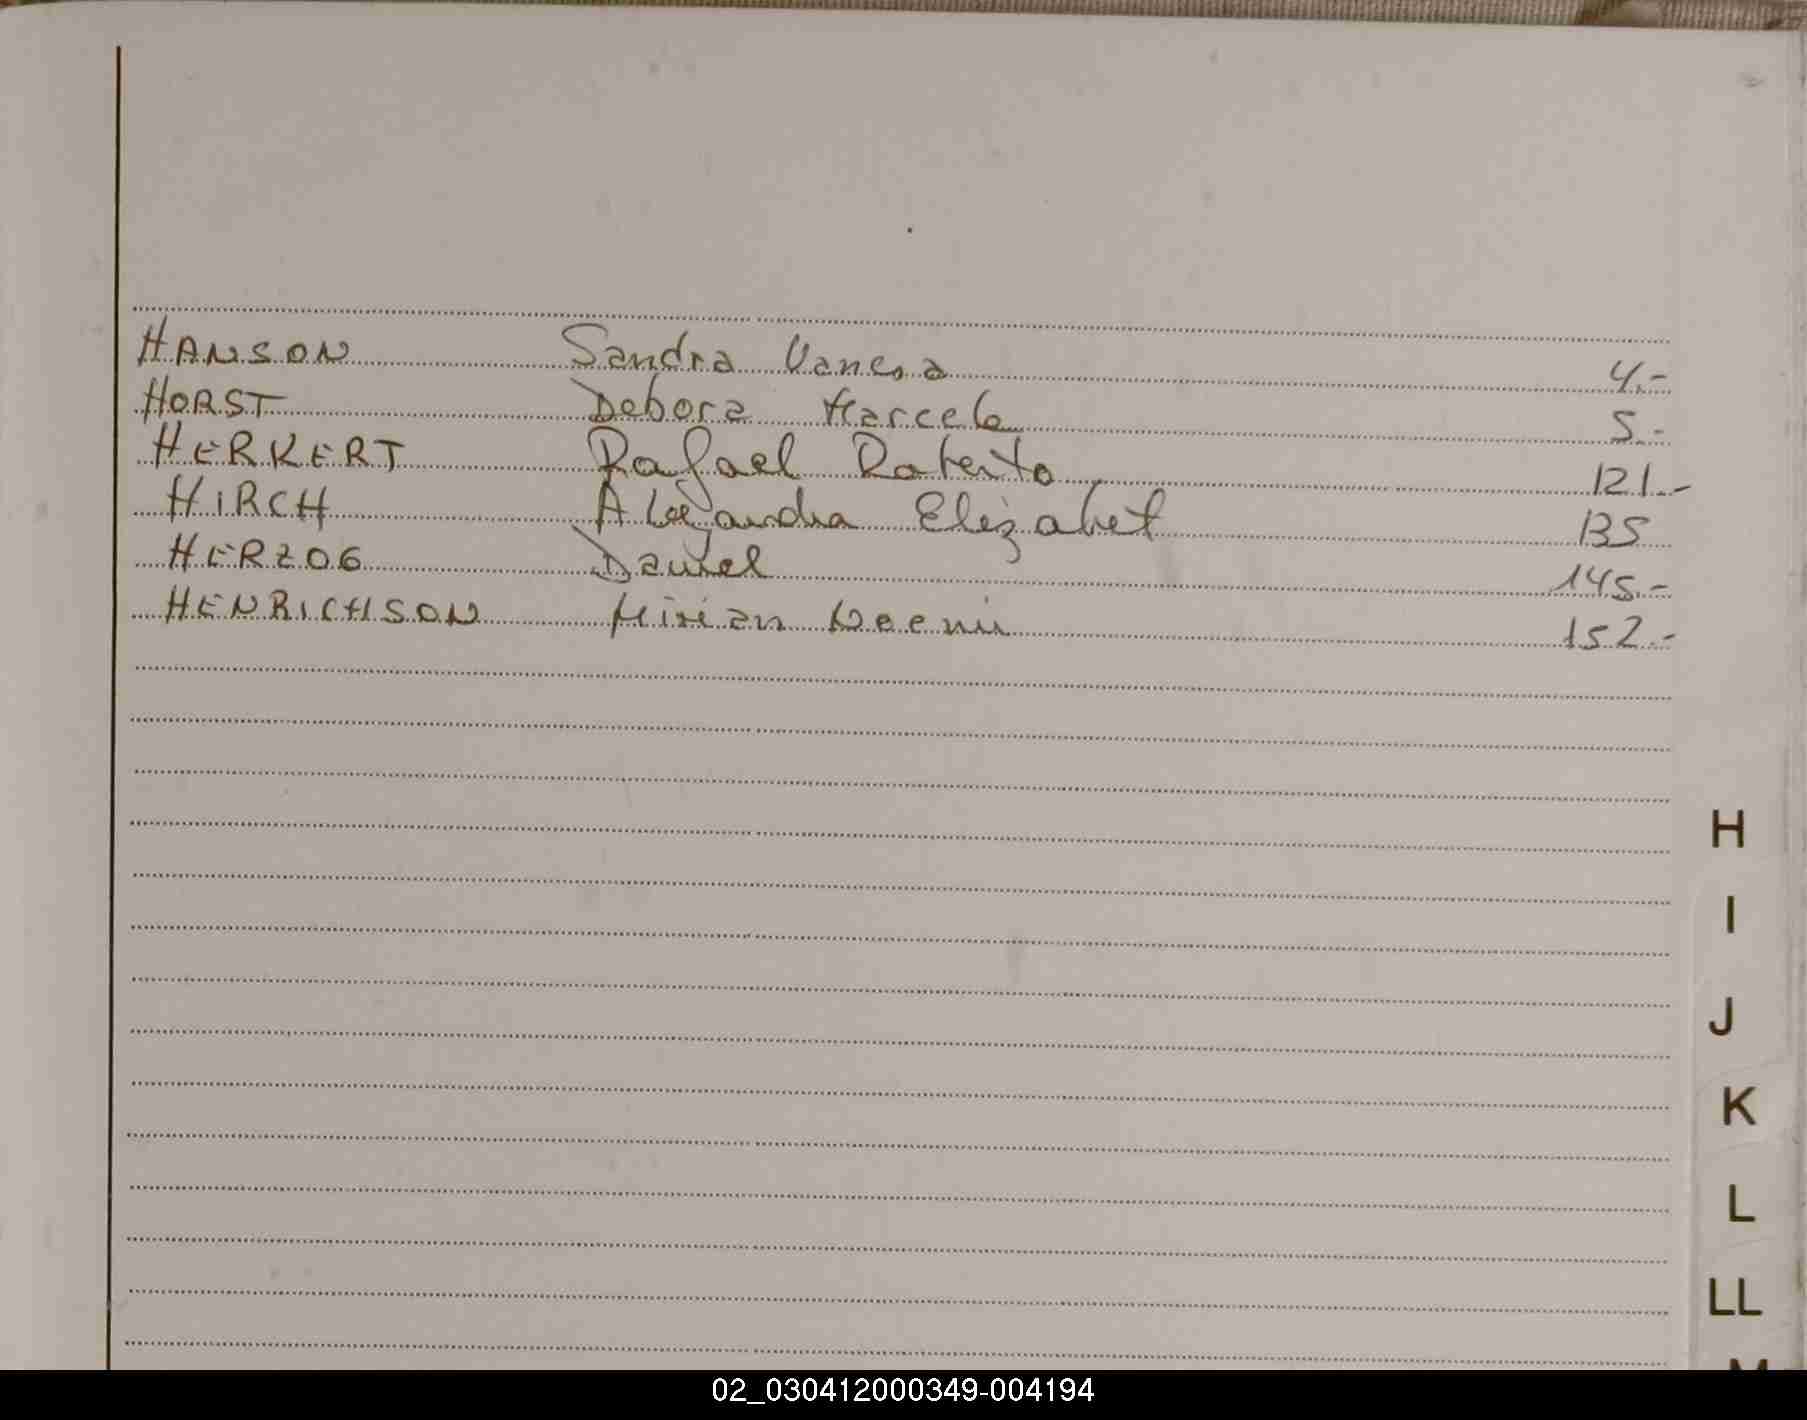 HANSON Sandra Vanesa 4.-
HORST Debora Marcela 5.-
HERKERT Rafael Roberto 121.-
HIRCH Alejandra Elizabet 135
HERZOG Daniel 145.-
HENRICHSON Mirian Noemi 152.-
H
I
J
K
L
LL
M
02_030412000349-004194